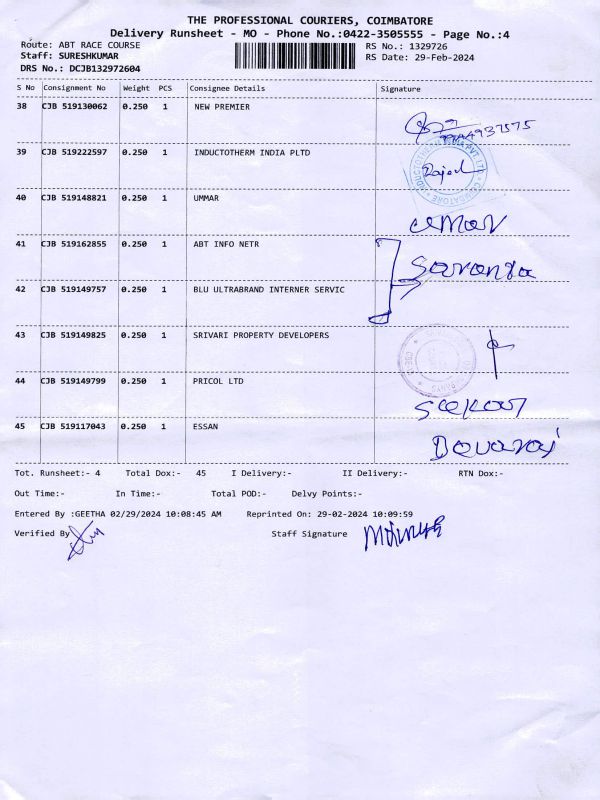 THE PROFESSIONAL COURIERS, COIMBATORE
Delivery Runsheet - MO - Phone No.:0422-3505555 - Page No.:4
Route: ABT RACE COURSE RS No.: 1329726
Staff: SURESHKUMAR RS Date: 29-Feb-2024
DRS No.: DCJB132972604
S No Consignment No Weight PCS Consignee Details Signature
38 CJB 519130062 0.250 1 NEW PREMIER
39 CJB 519222597 0.250 1 INDUCTOTHERM INDIA PLTD
INDUCTOTHERM INDIA PVT LTD COIMBATORE
40 CJB 519148821 0.250 1 UMMAR umar
41 CJB 519162855 0.250 1 ABT INFO NETR
42 CJB 519149757 0.250 1 BLU ULTRABRAND INTERNER SERVIC
43 CJB 519149825 0.250 1 SRIVARI PROPERTY DEVELOPERS
44 CJB 519149799 0.250 1 PRICOL LTD
45 CJB 519117043 0.250 1 ESSAN
Tot. Runsheet:- 4 Total Dox:- 45 I Delivery:- II Delivery:- RTN Dox:-
Out Time:- In Time:- Total POD:- Delvy Points:-
Entered By :GEETHA 02/29/2024 10:08:45 AM Reprinted On: 29-02-2024 10:09:59
Verified By Staff Signature